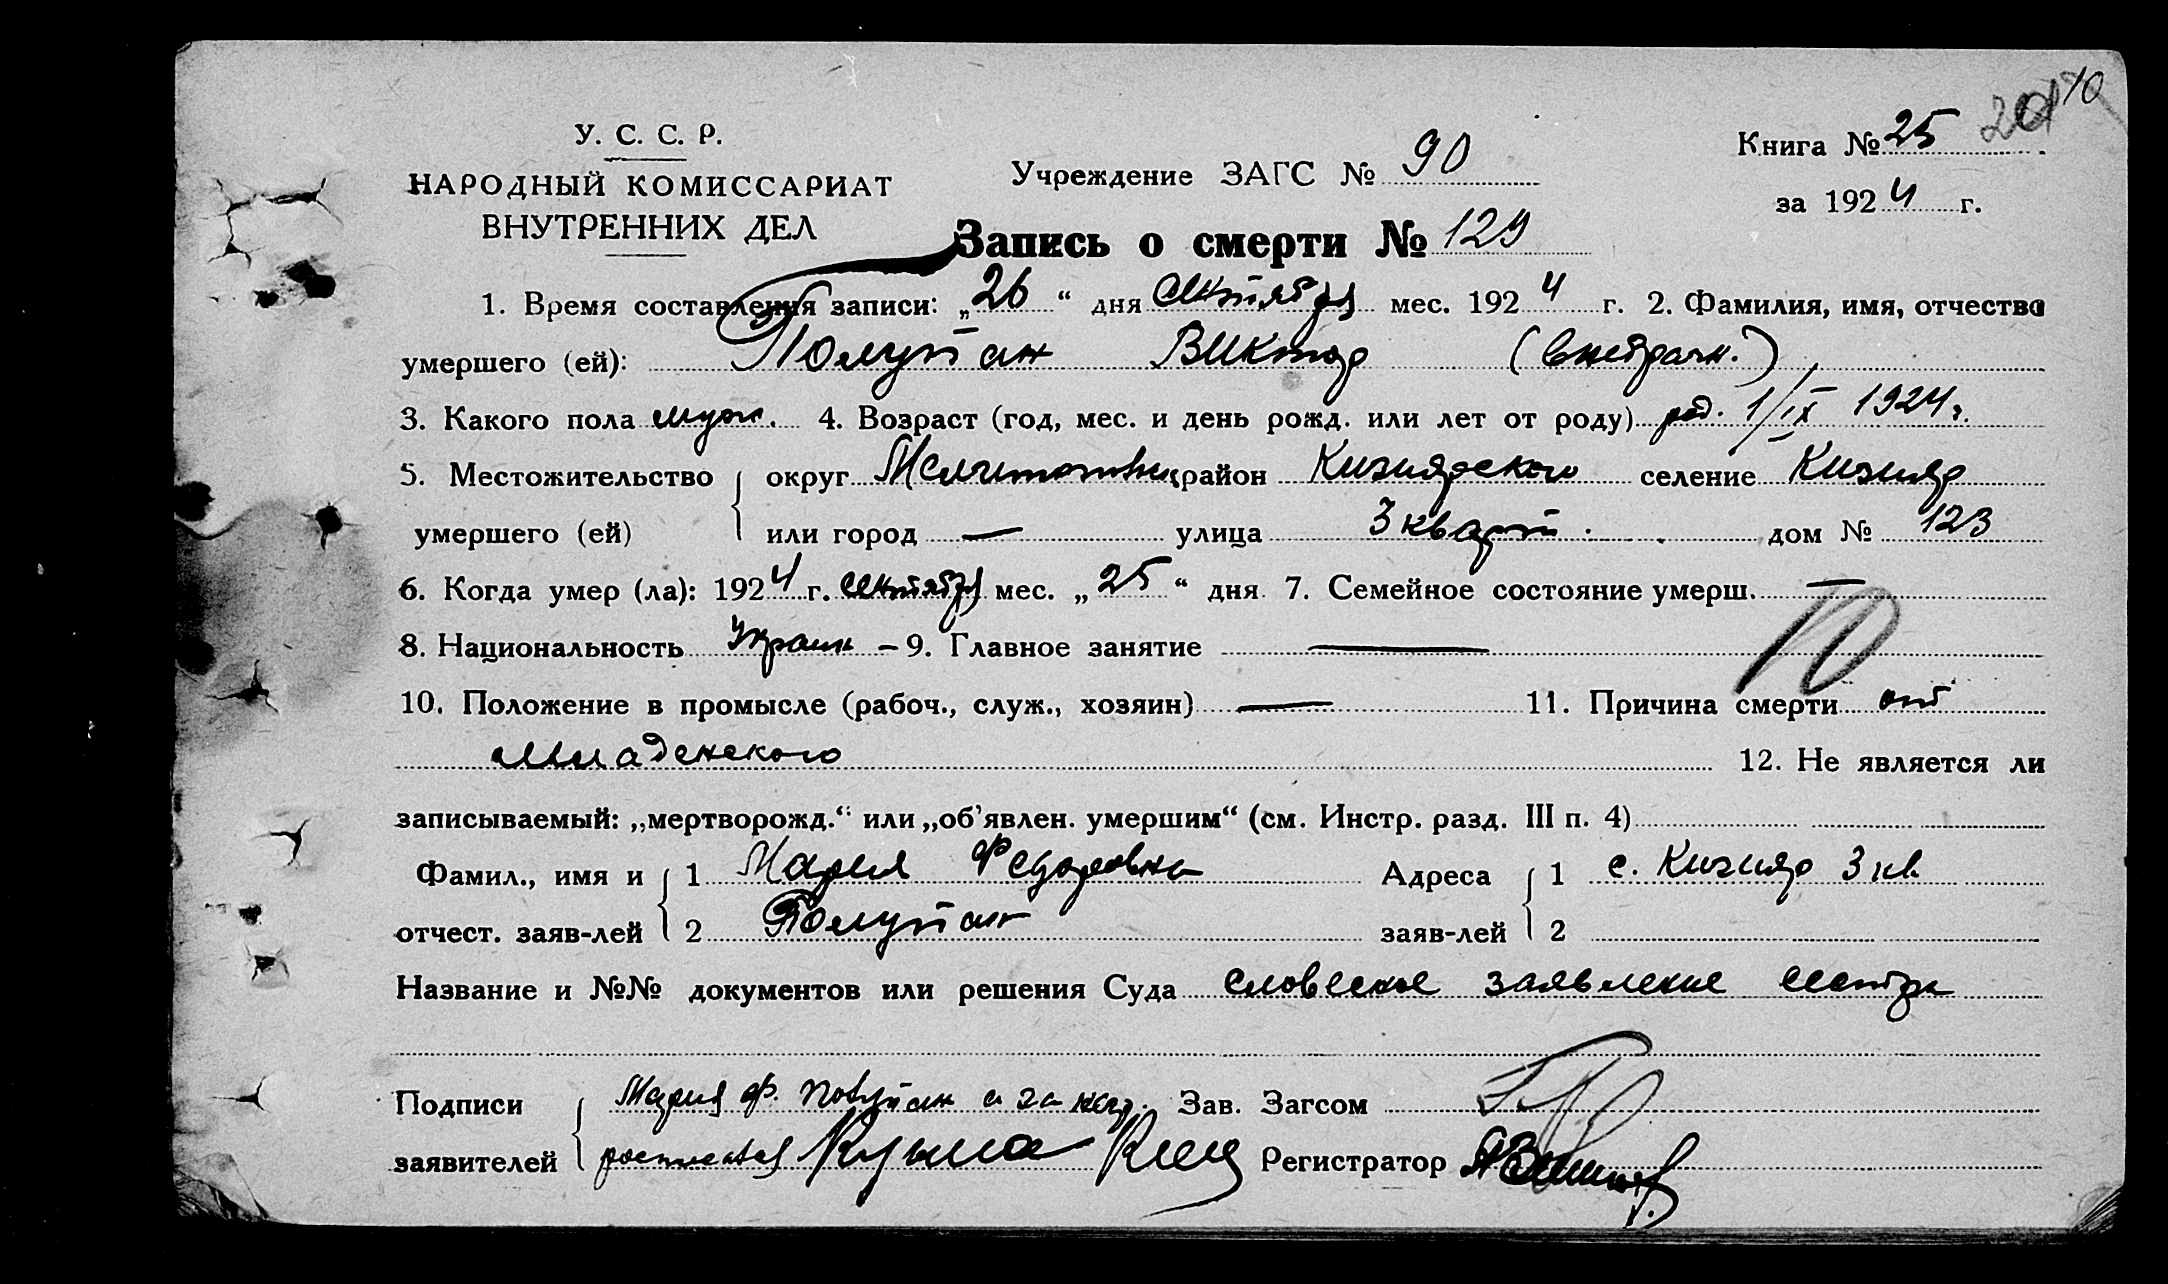 У. С. С. Р.
НАРОДНЫЙ КОМИССАРИАТ
ВНУТРЕННИХ ДЕЛ
Учреждение ЗАГС № 90
Книга № 25
за 1924 г.
10
Запись о смерти № 129
1. Время составления записи: „26“ дня сентября мес. 1924 г. 2. Фамилия, имя, отчество
умершего (ей): Полупан Виктор (внебрачн.)
3. Какого пола муж. 4. Возраст (год, мес. и день рожд. или лет от роду) род. 1/IX 1924 г.
5. Местожительство округ Мелитопольск район Кизиярского селение Кизияр
умершего (ей) или город — улица 3 кварт. дом № 123
6. Когда умер (ла): 1924 г. сентября мес. „25“ дня 7. Семейное состояние умерш. —
8. Национальность Украин – 9. Главное занятие —
10
10. Положение в промысле (рабоч., служ., хозяин) — 11. Причина смерти от
младенского 12. Не является ли
записываемый: „мертворожд.“ или „об'явлен. умершим“ (см. Инстр. разд. III п. 4)
Фамил., имя и 1 Мария Федоровна Адреса 1 с. Кизияр 3 кв.
отчест. заяв-лей 2 Полупан заяв-лей 2
Название и №№ документов или решения Суда словесное заявление сестры
Подписи Мария Ф. Полупан а за негр. Зав. Загсом
заявителей Регистратор